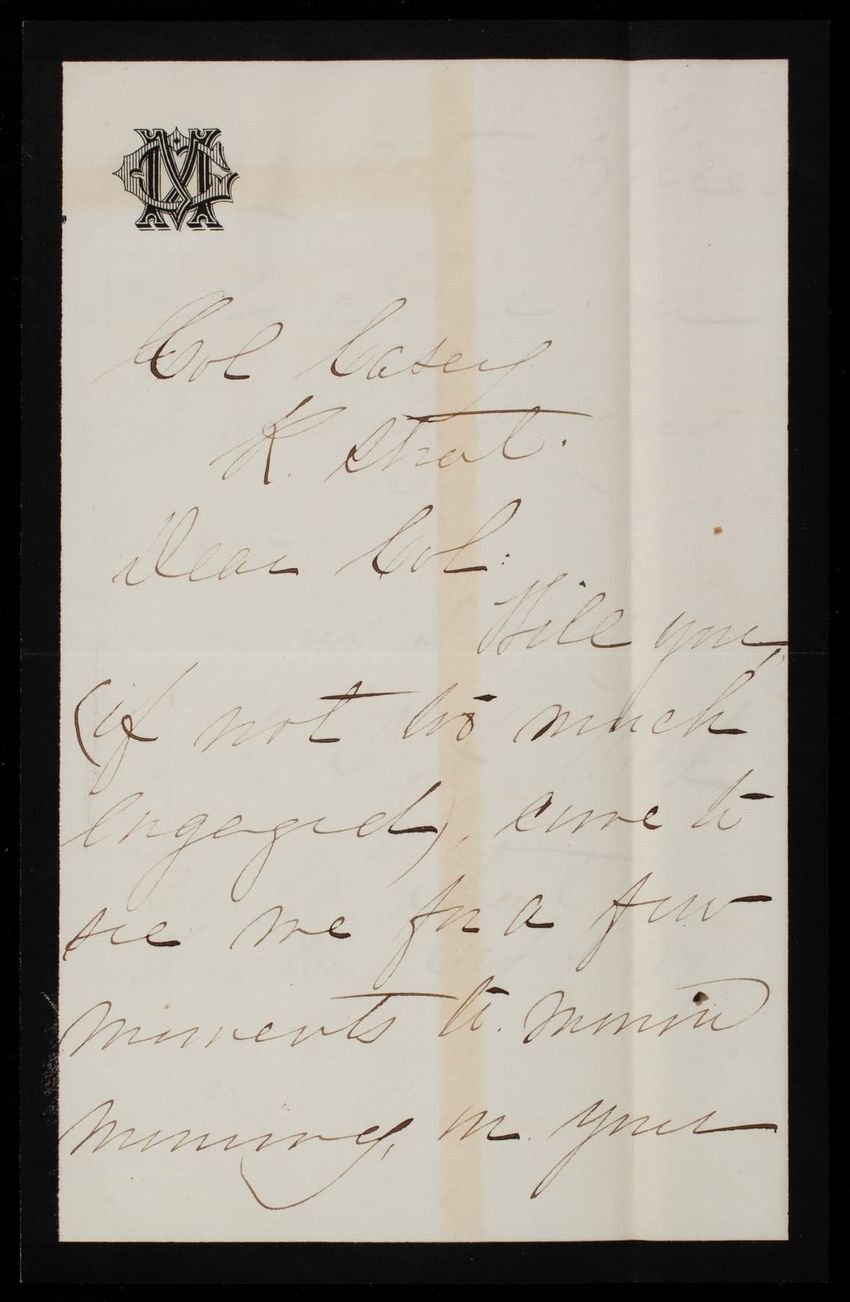 Col Casey
K. Street.
Dear Col:
Will you,
(if not too much
engaged), come to
see me for a few
moments to. morrow
morning, on your